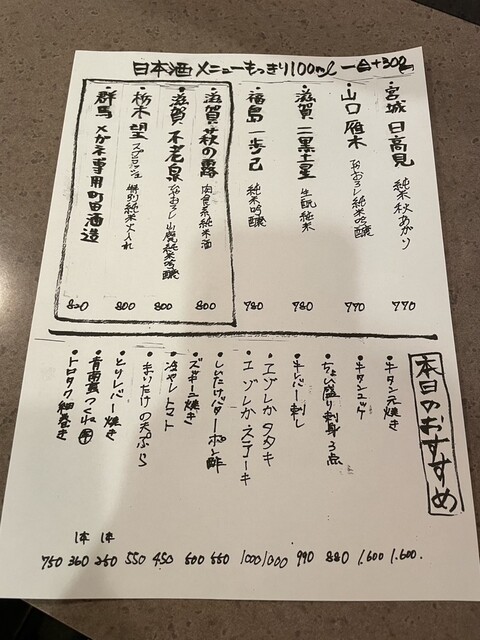 日本酒メニューもっきり100ml 一合+300円
・宮城 日高見 純米秋あがり 770
・山口 雁木 ひやおろし純米吟醸 770
・滋賀 二黒土星 生酛純米 780
・福島 一歩己 純米吟醸 780
・滋賀 萩の露 肉食系純米酒 800
・滋賀 不老泉 ひやおろし山廃純米吟醸 800
・栃木 望 特別純米火入れ 800
・群馬 メガネ専用町田酒造 820
本日のおすすめ
・牛タン元焼き 1.600.
・牛タンユッケ 1.600
・ちょい盛り刺身3点 880
・牛レバー刺し 990
・エゾシカタタキ 1000
・エゾシカステーキ 1000
・しいたけバターポン酢 550
・ズッキーニ焼き 500
・冷やしトマト 450
・まいたけの天ぷら 550
・とりレバー焼き 1本 250
・青南蛮つくね 1本 360
・トロタク細巻き 750